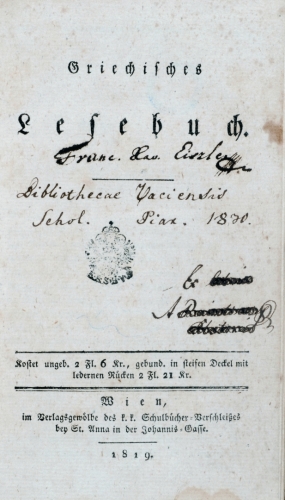 Griechisches
Lesebuch.
Franc. Xav. Eiszle
Bibliothecae Vaciensis
Schol. Piar. 1830.
Ex
A
Kostet ungeb. 2 Fl. 6 Kr., gebund. in steifen Deckel mit
ledernen Rücken 2 Fl. 21 Kr.
Wien,
im Verlagsgewölbe des k. k. Schulbücher-Verschleißes
bey St. Anna in der Johannis-Gasse.
1819.